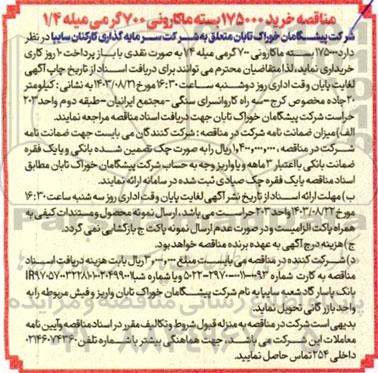 مناقصه خرید ۱۷۵۰۰۰ بسته ماکارونی ۷۰۰ گرمی میله ۱/۴
شرکت پیشگامان خوراک تابان متعلق به شرکت سرمایه گذاری کارکنان سایپا در نظر
دارد ۱۷۵۰۰۰ بسته ماکارونی ۷۰۰ گرمی میله ۷۴ به صورت نقدی با باز پرداخت ۱۰ روز کاری
خریداری نماید، لذا متقاضیان محترم می توانند برای دریافت اسناد از تاریخ چاپ آگهی
لغایت پایان وقت اداری روز دوشنبه ساعت ۱۶:۳۰ مورخ ۱۴۰۳/۰۸/۲۱ به نشانی: کیلومتر
۲۰ جاده مخصوص کرج-سه راه کاروانسرای سنگی-مجتمع ایرانیان-طبقه دوم واحد ۲۰۳
حراست شرکت پیشگامان خوراک تابان جهت دریافت اسناد مناقصه مراجعه نمایند.
الف) میزان ضمانت نامه شرکت در مناقصه: شرکت کنندگان می بایست جهت ضمانت نامه
شرکت در مناقصه، ریال را به صورت چک تضمین شده بانکی و یا یک فقره
ضمانت بانکی با اعتبار ۳ ماهه و یا واریز وجه به حساب شرکت پیشگامان خوراک تابان مطابق
اسناد مناقصه یا یک فقره چک صیادی ثبت شده در سامانه ارائه نمایند.
ب) مهلت ارائه اسناد از تاریخ نشر آگهی لغایت پایان وقت اداری روز سه شنبه ساعت ۱۶:۳۰
مورخ ۱۴۰۳/۰۸/۲۲ واحد ۲۰۳ حراست می باشد، ارسال نمونه محصول و مستندات کیفی به
همراه پاکت الزامیست و در صورت عدم ارسال نمونه پاکت ج بازگشایی نمی گردد.
ج) هزینه درج آگهی به عهده برنده مناقصه خواهد بود.
د) شرکت کننده در مناقصه می بایست مبلغ ریال بابت هزینه دریافت اسناد
مناقصه به کارت شماره و یا شماره شبا
بانک پاسارگاد شعبه سایپا به نام شرکت پیشگامان خوراک تابان واریز و فیش مربوطه را به
واحد بازرگانی تحویل نماید.
بدیهی است شرکت در مناقصه به منزله قبول شروط و تکالیف مقرر در اسناد مناقصه و آیین نامه
معاملات این شرکت می باشد، جهت هماهنگی بیشتر با شماره تلفن ۰۲۱۴۶۰۷۴۳۶۰
داخلی ۲۵۴ تماس حاصل نمایید.